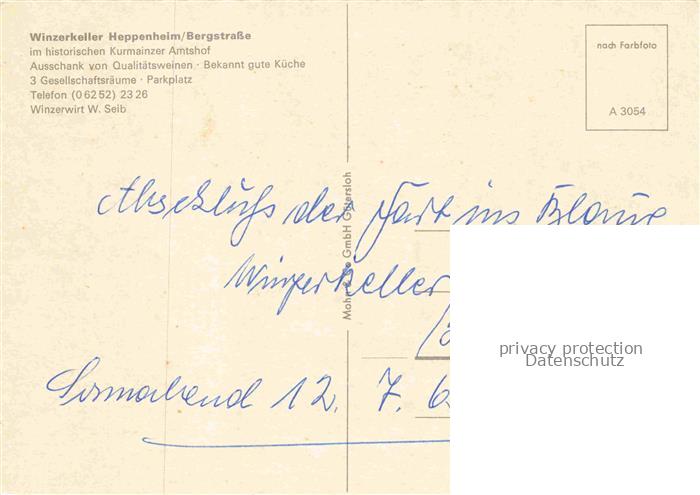 Winzerkeller Heppenheim/Bergstraße
im historischen Kurmainzer Amtshof
Ausschank von Qualitätsweinen · Bekannt gute Küche
3 Gesellschaftsräume · Parkplatz
Telefon (0 62 52) 23 26
Winzerwirt W. Seib
nach Farbfoto
A 3054
Abschluß der Fart ins Blaue
Winzerkeller
Sonnabend 12. 7. 6
GmbH Gütersloh
privacy protection
Datenschutz